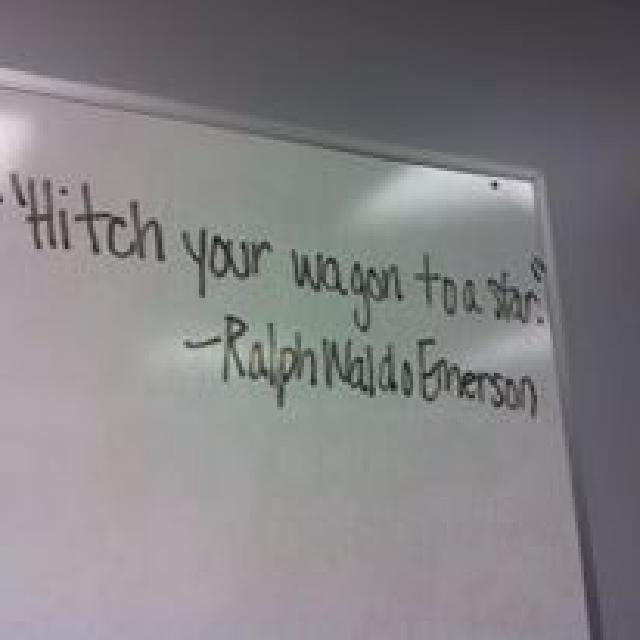 "Hitch your wagon to a star."
-Ralph Waldo Emerson